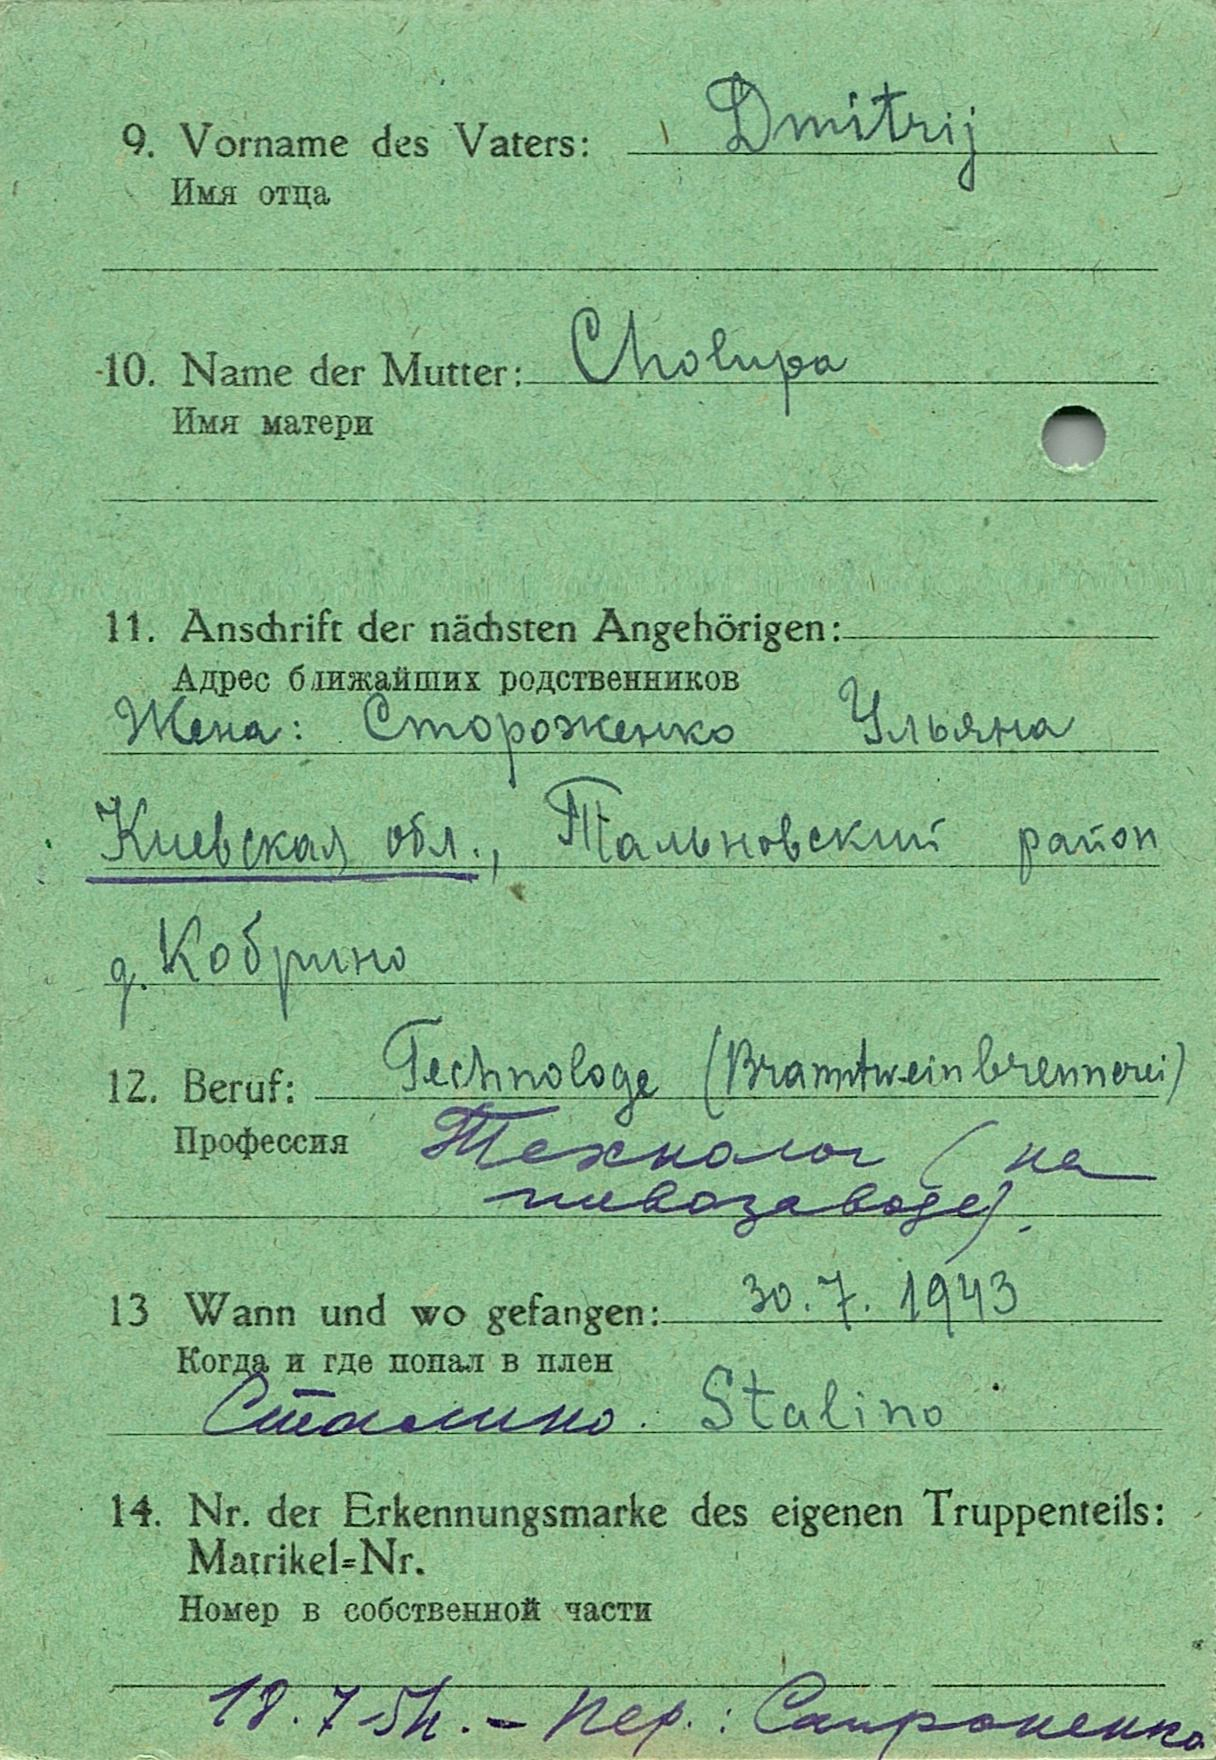 9. Vorname des Vaters: Dmitrij
Имя отца
10. Name der Mutter: Cholupa
Имя матери
11. Anschrift der nächsten Angehörigen:
Адрес ближайших родственников
Жена: Стороженко Ульяна
Киевская обл., Тальновский район
д. Кобрино
12. Beruf: Technologe (Branntweinbrennerei)
Профессия Технолог (на
пивозаводе).
13 Wann und wo gefangen: 30.7.1943
Когда и где попал в плен
Сталино. Stalino
14. Nr. der Erkennungsmarke des eigenen Truppenteils:
Matrikel=Nr.
Номер в собственной части
18.7 54. - пер.: Сапроненко